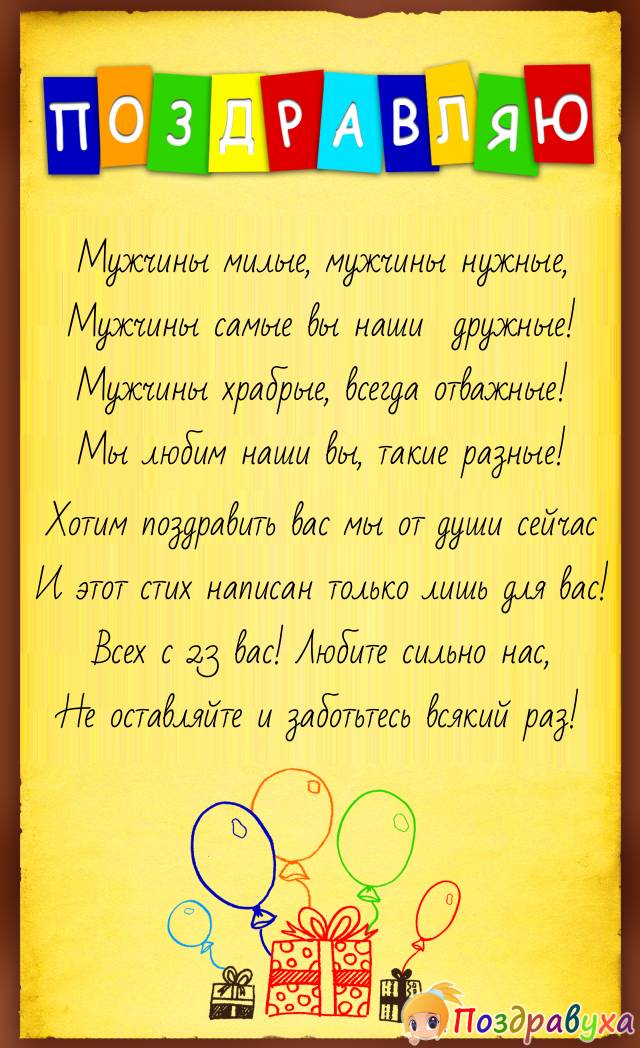 ПОЗДРАВЛЯЮ
Мужчины милые, мужчины нужные,
Мужчины самые вы наши дружные!
Мужчины храбрые, всегда отважные!
Мы любим наши вы, такие разные!
Хотим поздравить вас мы от души сейчас
И этот стих написан только лишь для вас!
Всех с 23 вас! Любите сильно нас,
Не оставляйте и заботьтесь всякий раз!
Поздравуха